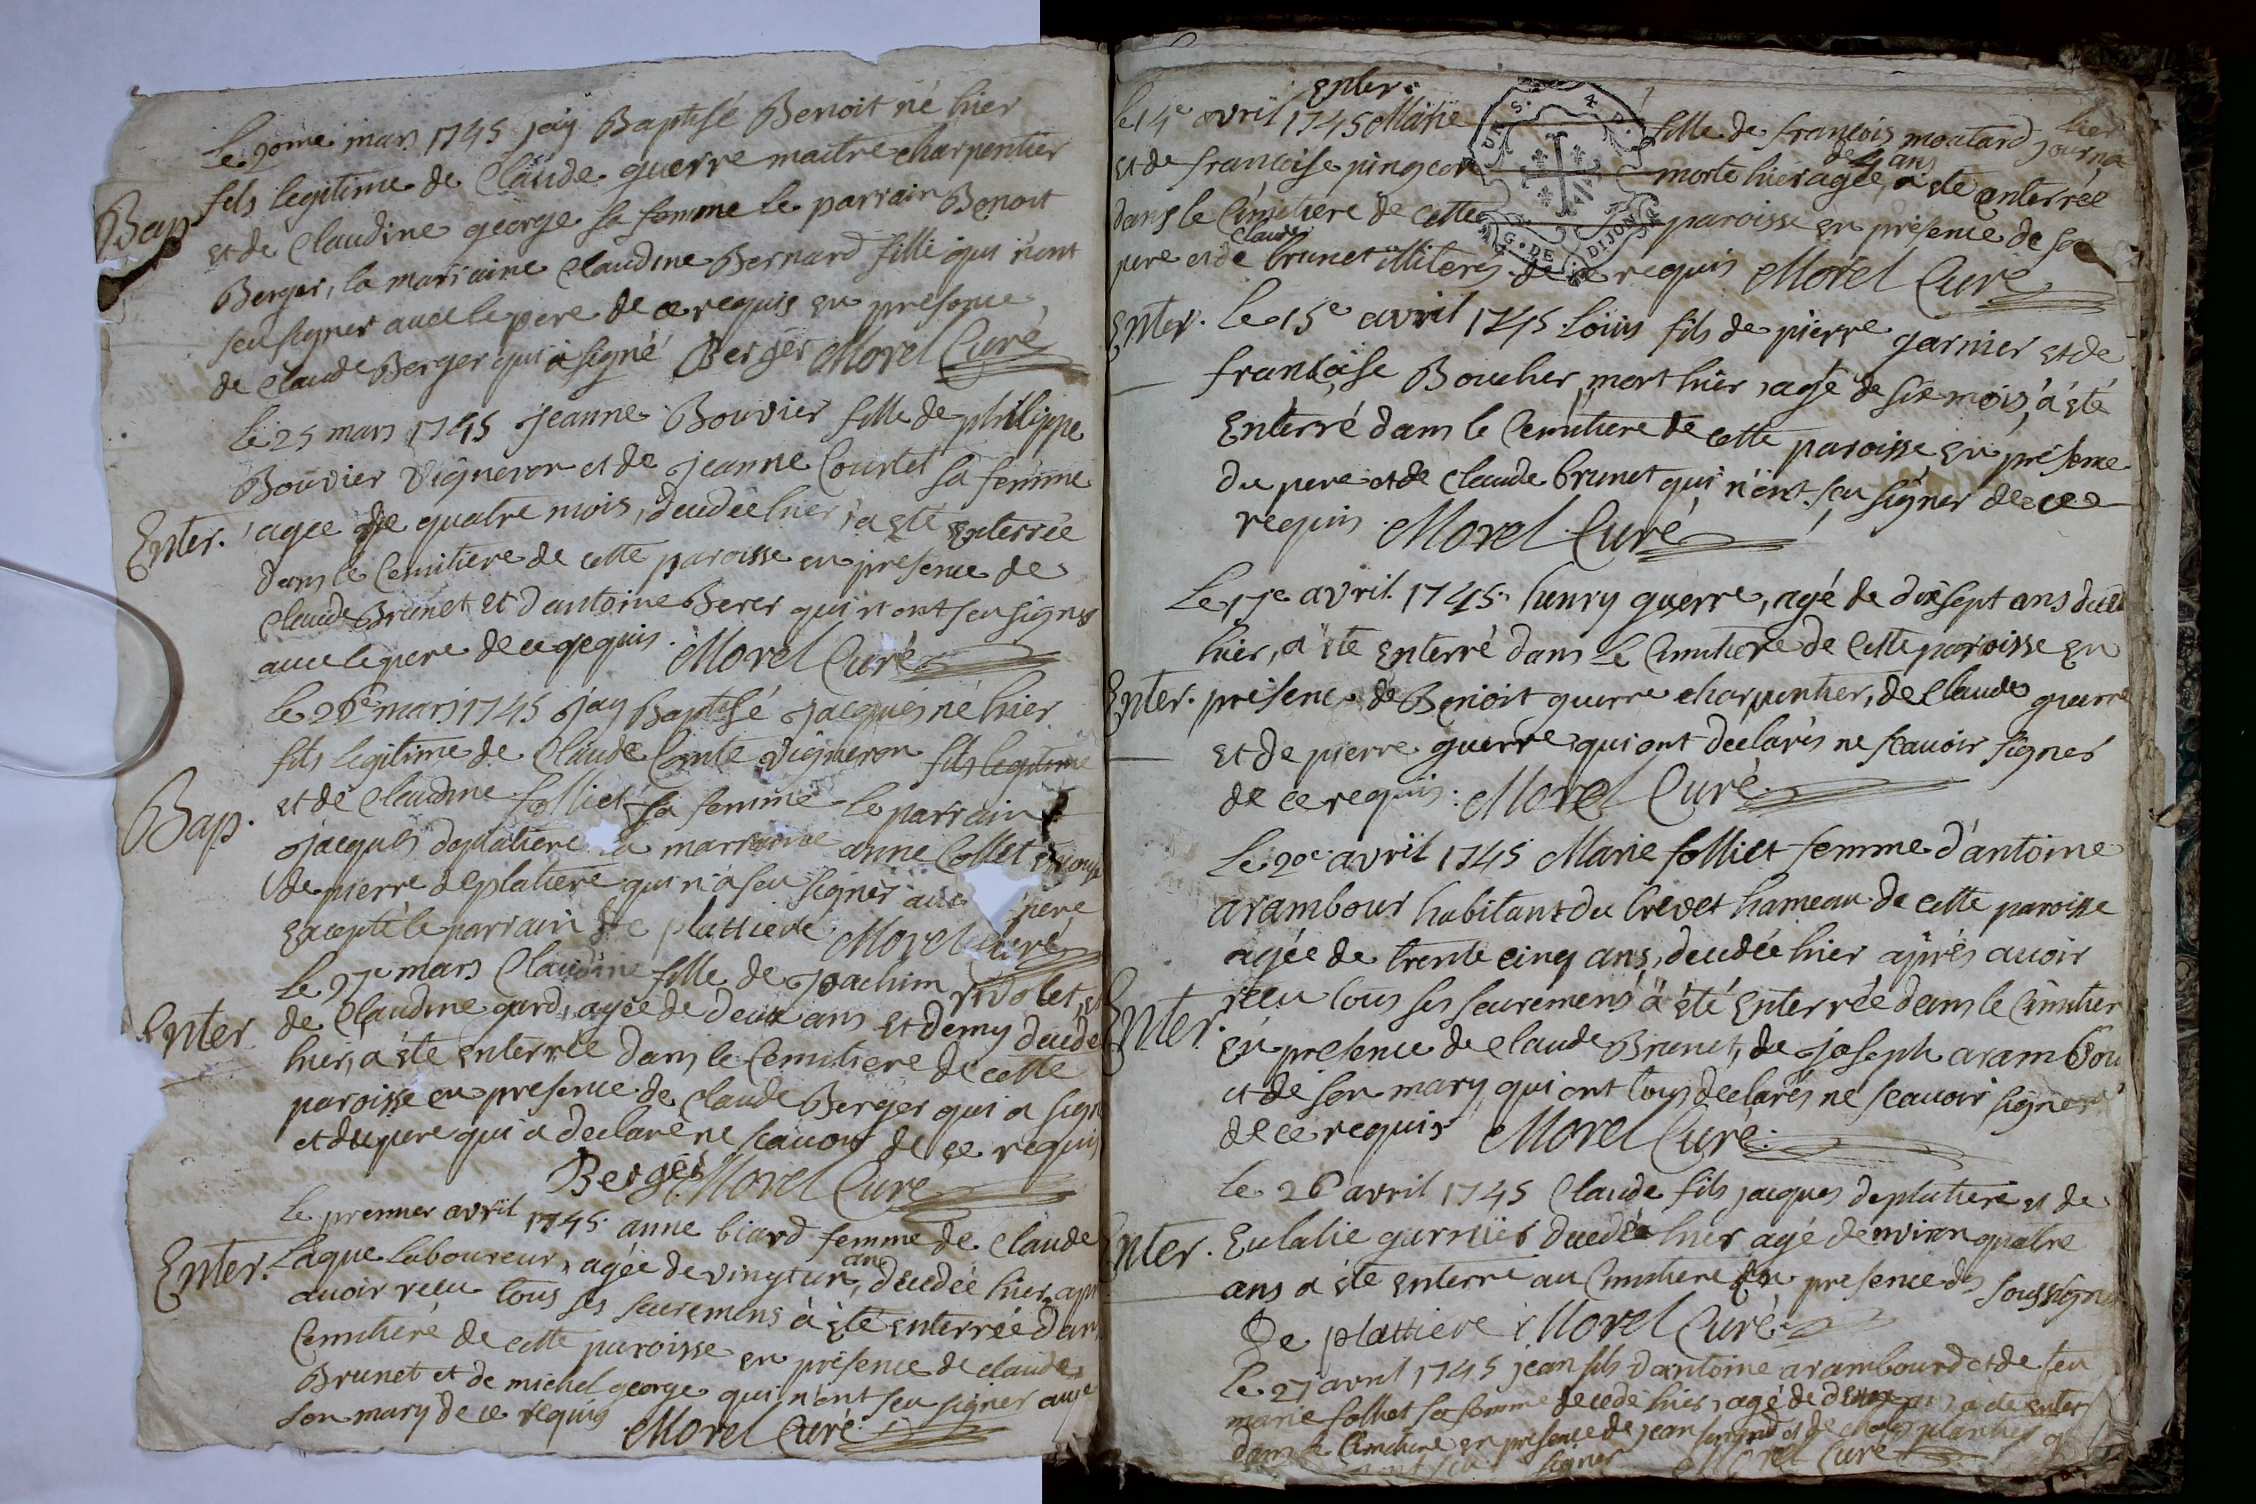 Le 20me mars 1745 jay Baptisé Benoit né hier
fils legitime de Claude guerre maitre charpentier
Bap
et de Claudine george sa femme le parrain Benoit
Berger, la marraine Claudine Bernard fille qui n'ont
seu signer avec le pere de ce requis en presence
de Claude Berger qui a signé Berger Morel Curé
Le 25 mars 1745 jeanne Bouvier fille de philippe
Bouvier Vigneron et de jeanne Courtet sa femme
Enter. agée de quatre mois, decedée hier, a eté enterrée
dans le Cemitiere de cette paroisse en presence de
Claude Brunet et d'antoine Berer qui n'ont seu signer
avec le pere de ce requis. Morel Curé
Le 26e mars 1745 jay Baptisé jacques né hier
fils legitime de Claude Comte Vigneron fils legitime
Bap. et de Claudine folliet sa femme le parrain
jacques deplatiere la marraine anne Collet
de pierre deplatiere qui n'a seu signer avec pere
Excepté le parrain De plattiere Morel Curé
Le 27e mars Claudine fille de Joachim rivolet, et
Enter de Claudine gard, agée de deux ans et demy decedé
hier, a eté enterrée dans le Cemitiere de cette
paroisse en presence de Claude Berger qui a signé
et du pere qui a declaré ne scavoir de ce requis
Berger Morel Curé
Le premier avril 1745 anne biard femme de Claude
Enter. Laque laboureur, agée de vingt un an, decedée hier, apr
avoir receu tous ses sacremens a eté enterrée dans
Cemitiere de cette paroisse en presence de claude
Brunet et de michel george qui n'ont seu signer avec
son mary de ce requis Morel Curé
Enter.
Le 14e avril 1745 Marie fille de francois moatard journa
hier
et de francoise pingeon morte hier agée de 4 ans a eté enterrée
dans le Cimitiere de cette paroisse en presence de son
pere et de Claude brunet illiterés de ce requis Morel Curé
Enter. Le 15e avril 1745 loüis fils de pierre garnier et de
francoise Boucher, mort hier, agé de six mois, a été
Enterré dans le Cemitiere de cette paroisse en presence
du pere et de Claude brunet qui n'ont seu signer de ce
requis. Morel Curé
Le 17e avril 1745 henry guerre, agé de dixsept ans deced
hier, a eté enterré dans le Cimitiere de cette paroisse en
Enter. presence de Benoit guerre charpentier, de Claude guerre
et de pierre guerre qui ont declarés ne scavoir signer
de ce requis. Morel Curé
Le 20e avril 1745 Marie folliet femme d'antoine
arambour habitant du brevet hameau de cette paroisse
agée de trente cinq ans, decedée hier après avoir
Enter. receu tous ses sacremens a été enterrée dans le Cimitier
en presence de Claude Brunet, de joseph arambou
et de son mary qui ont tous declarés ne scavoir signer
de ce requis Morel Curé
Le 26 avril 1745 Claude fils jacques deplatiere et de
Enter. Eulalie garnier decedé hier agé denviron quatre
ans a eté enterré au Cimitiere en presence des soussigné
De plattiere Morel Curé
Le 27 avril 1745 jean fils d'antoine arambourd et de feu
marie folliet sa femme decedé hier, agé de deux ans a eté enter
dans le Cimitiere en presence de jean et de
n'ont seu signer Morel Curé